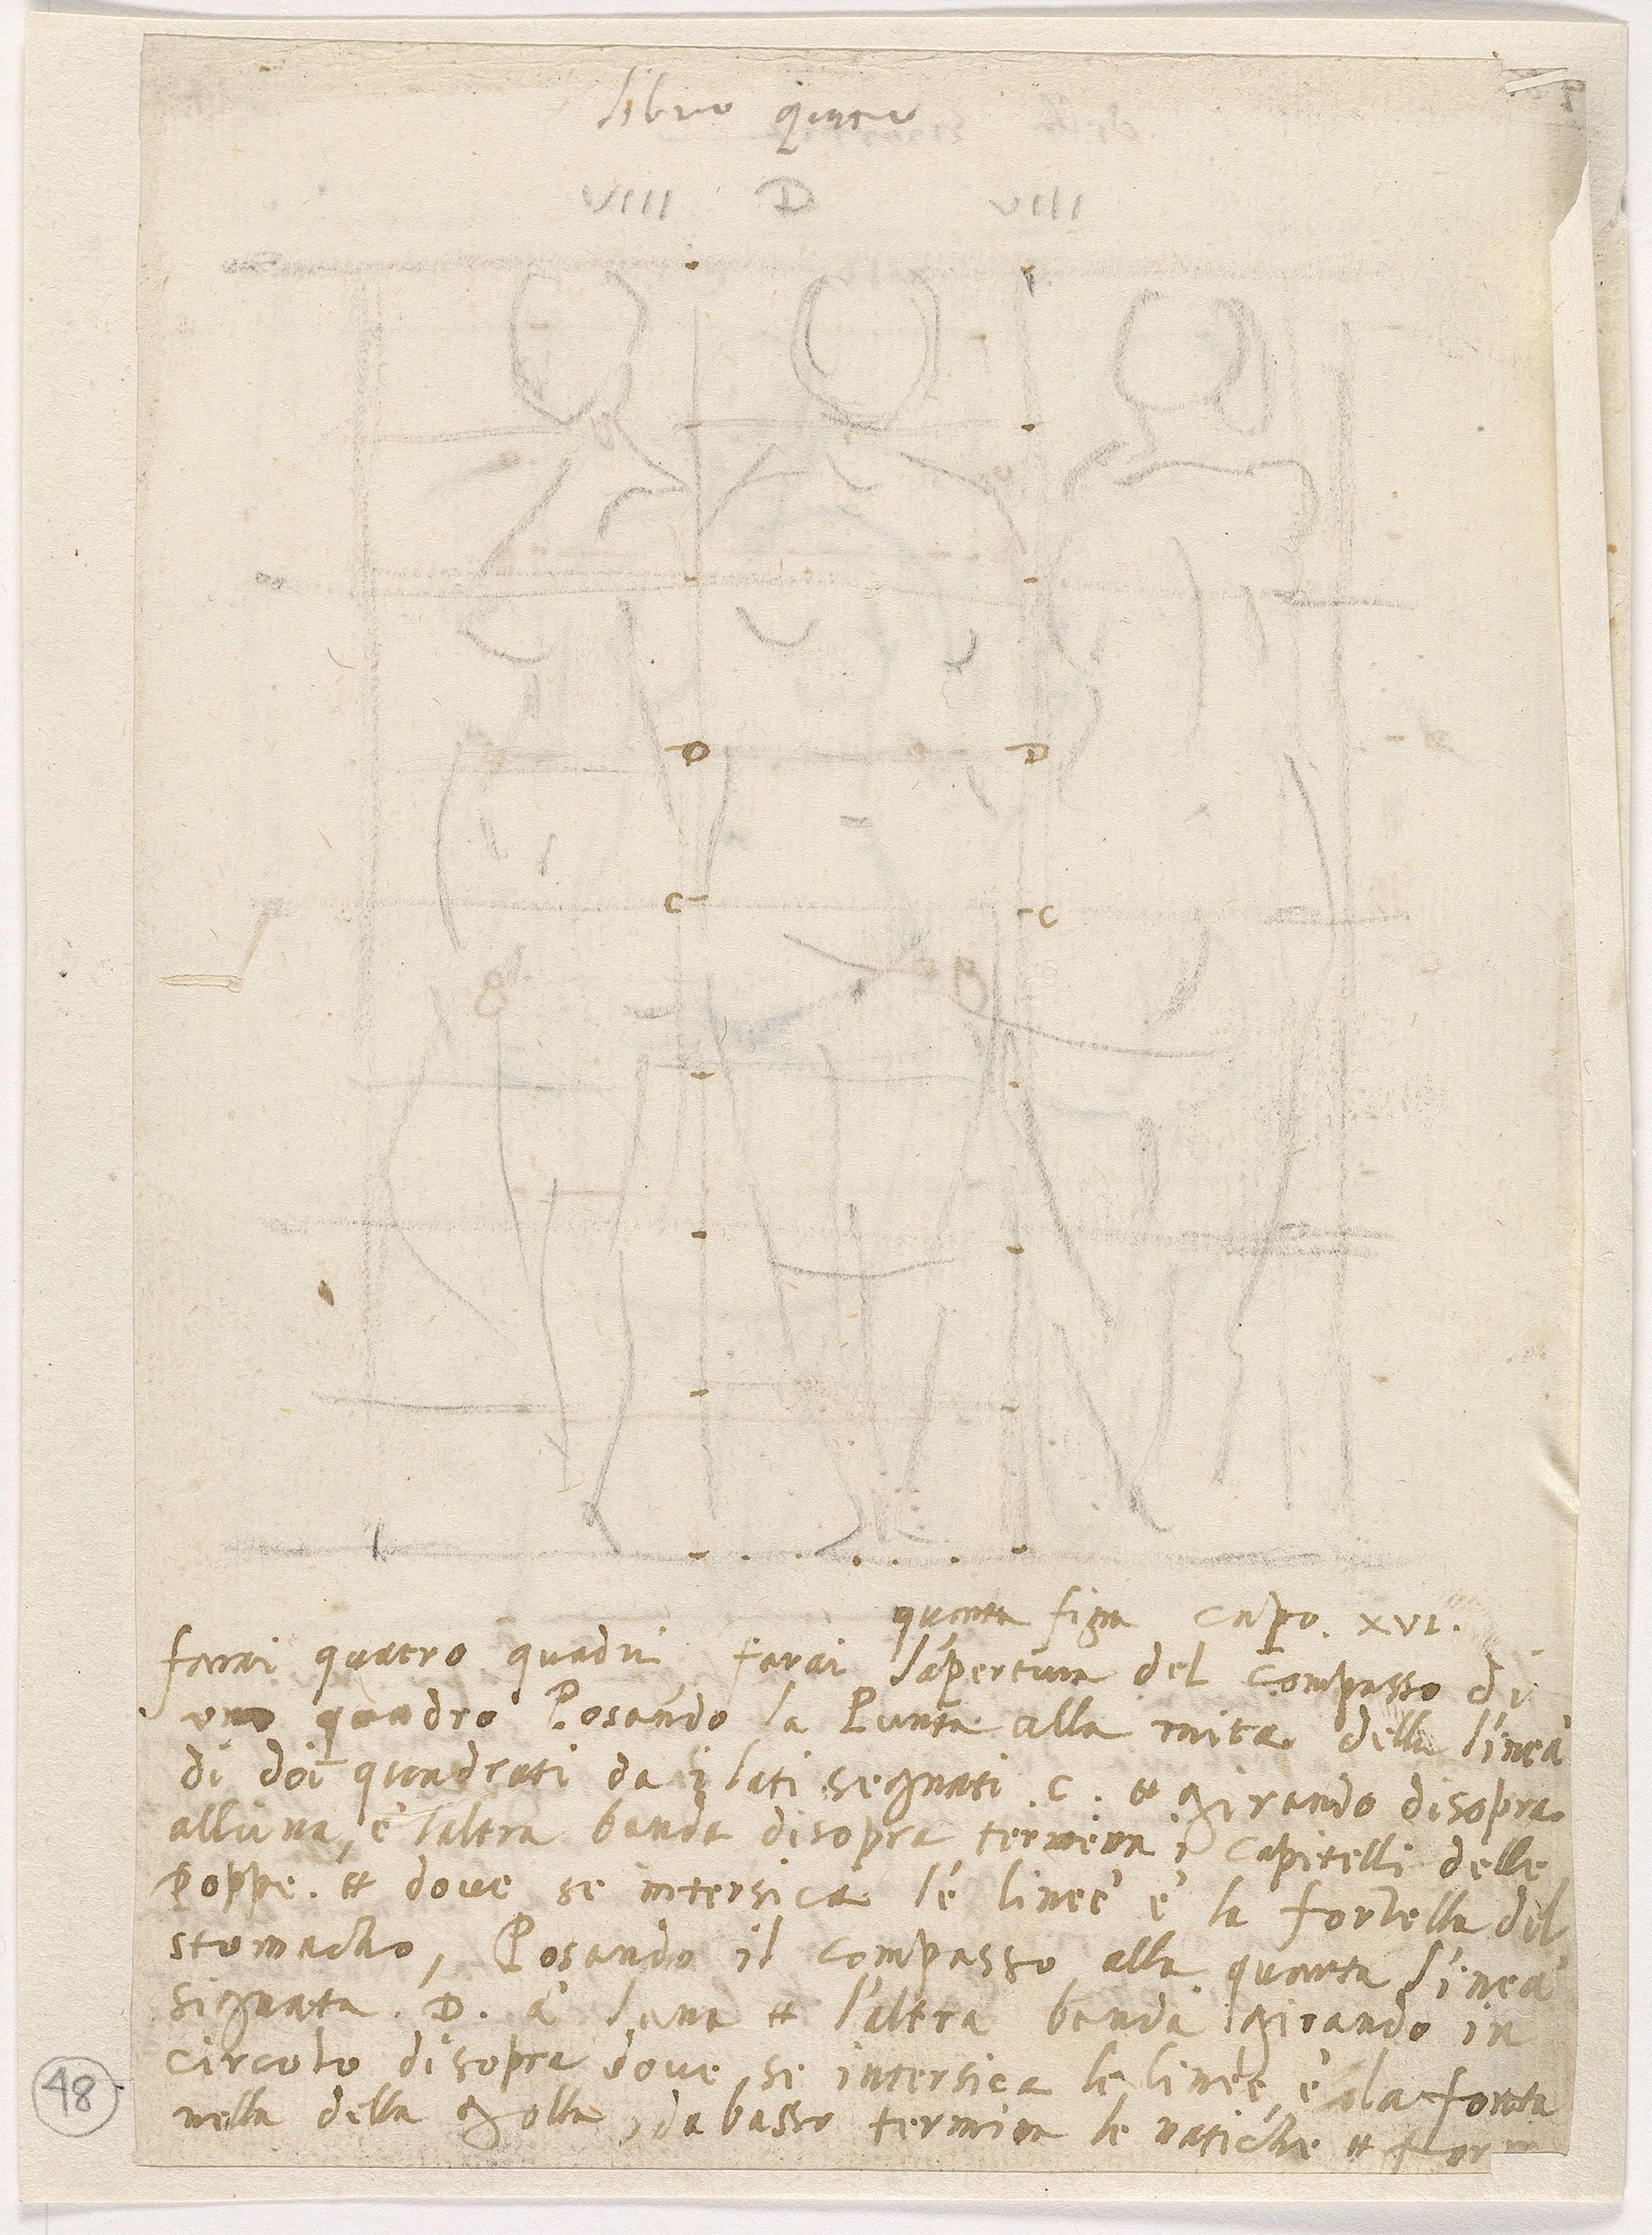 libro quinto
VIIII D VIIII
D D
C C
8 8
quarta figra capo. XVI.
farai quatro quadri farai l'apertura del compasso di
uno quadro Posando la Punta alla mita della linea
di doi quadrati da i lati segnati .C. et girando disopra
alluna, e laltra banda disopra termina i capitelli delle
Poppe. et doue se intersica le linee è la forcella del
stomacho, Posando il compasso alla quarta linea
signata .D. a luna et l'altra banda girando in
circolo disopra doue se intersica le linee, è la fonta
nella della golla, da basso termina le natiche et
48